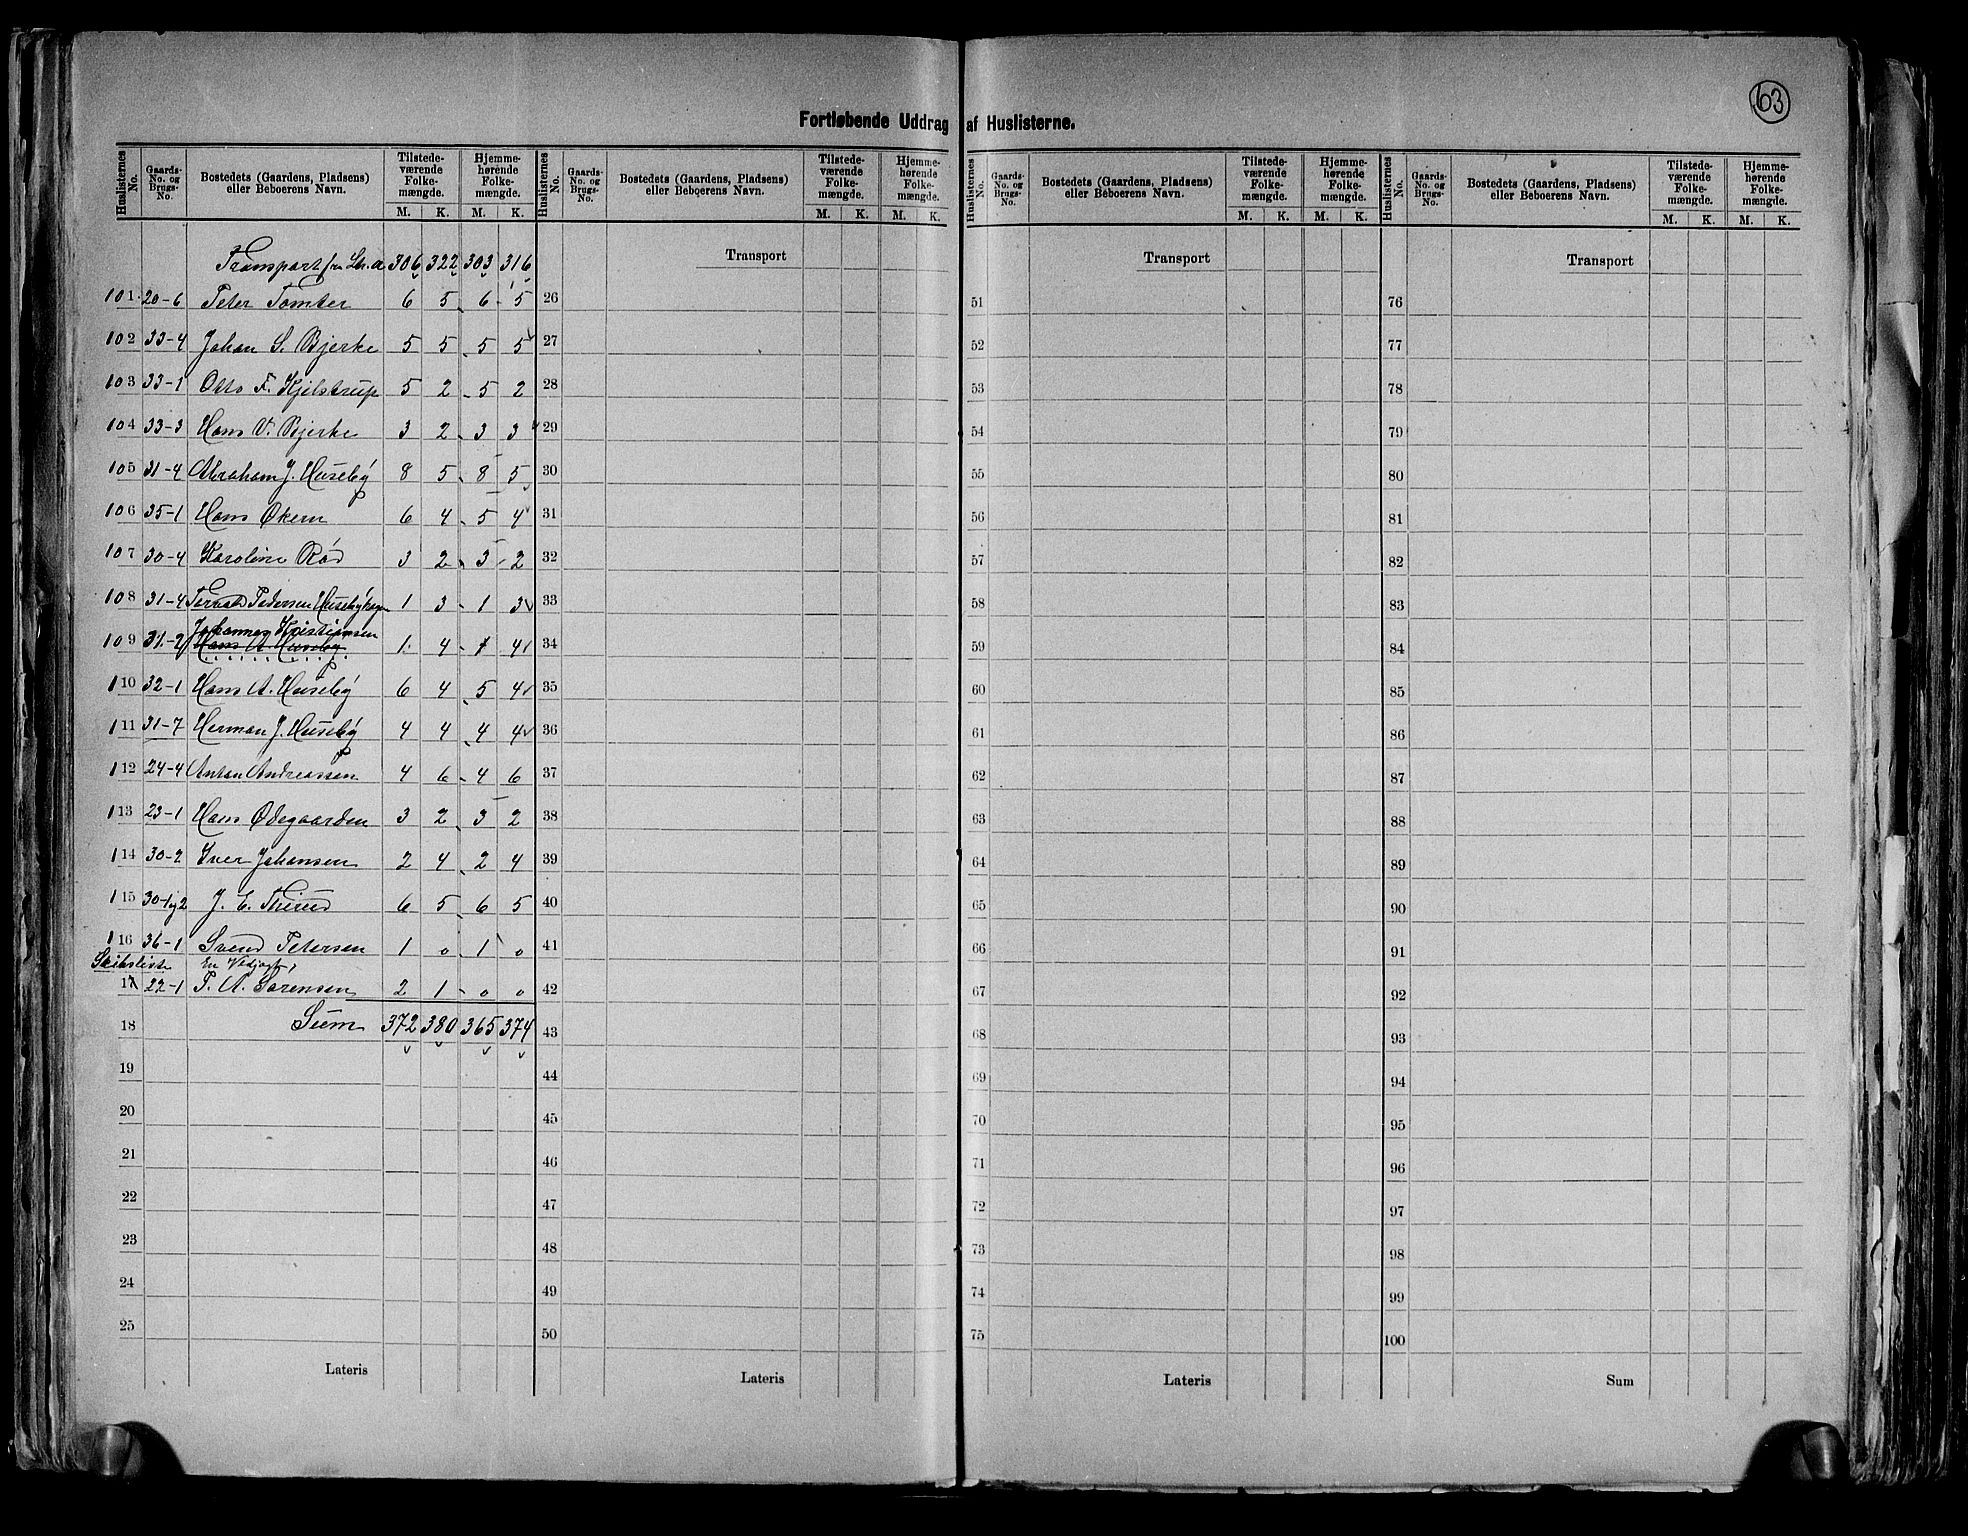 63
Fortløbende Uddrag af Huslisterne.
Huslisternes No. | Gaards-No. og Brugs-No. | Bostedets (Gaardens, Pladsens) eller Beboerens Navn. | Tilstedeværende Folkemængde. M. K. | Hjemmehørende Folkemængde. M. K.
Transport fra Litr. a 306 322 303 316
101 20-6 Peter Tomter 6 5 6 5
102 33-4 Johan S. Bjerke 5 5 5 5
103 33-1 Otto F. Kjilstrup 5 2 5 2
104 33-3 Hans V. Bjerke 3 2 3 3
105 31-4 Abraham J. Huseby 8 5 8 5
106 35-1 Hans Økern 6 4 5 4
107 30-4 Karoline Rød 3 2 3 2
108 31-4 Pedersen Husebyhagen 1 3 1 3
Johannes Kristiansen
109 31-2 Hans A. Huseby 1 4 1 4
110 32-1 Hans A. Huseby 6 4 5 4
111 31-7 Herman J. Huseby 4 4 4 4
112 24-4 Anton Andreassen 4 6 4 6
113 23-1 Hans Ødegaarden 3 2 3 2
114 30-2 Iver Johansen 2 4 2 4
115 30-1 og 2 J. E. 6 5 6 5
116 36-1 Svend Petersen 1 0 1 0
Skibsliste En
17 22-1 T. A. Sørensen 2 1 0 0
18 Sum 372 380 365 374
19
20
21
22
23
24
25
Lateris
Huslisternes No. | Gaards-No. og Brugs-No. | Bostedets (Gaardens, Pladsens) eller Beboerens Navn. | Tilstedeværende Folkemængde. M. K. | Hjemmehørende Folkemængde. M. K.
Transport
26
27
28
29
30
31
32
33
34
35
36
37
38
39
40
41
42
43
44
45
46
47
48
49
50
Lateris
Huslisternes No. | Gaards-No. og Brugs-No. | Bostedets (Gaardens, Pladsens) eller Beboerens Navn. | Tilstedeværende Folkemængde. M. K. | Hjemmehørende Folkemængde. M. K.
Transport
51
52
53
54
55
56
57
58
59
60
61
62
63
64
65
66
67
68
69
70
71
72
73
74
75
Lateris
Huslisternes No. | Gaards-No. og Brugs-No. | Bostedets (Gaardens, Pladsens) eller Beboerens Navn. | Tilstedeværende Folkemængde. M. K. | Hjemmehørende Folkemængde. M. K.
Transport
76
77
78
79
80
81
82
83
84
85
86
87
88
89
90
91
92
93
94
95
96
97
98
99
100
Sum